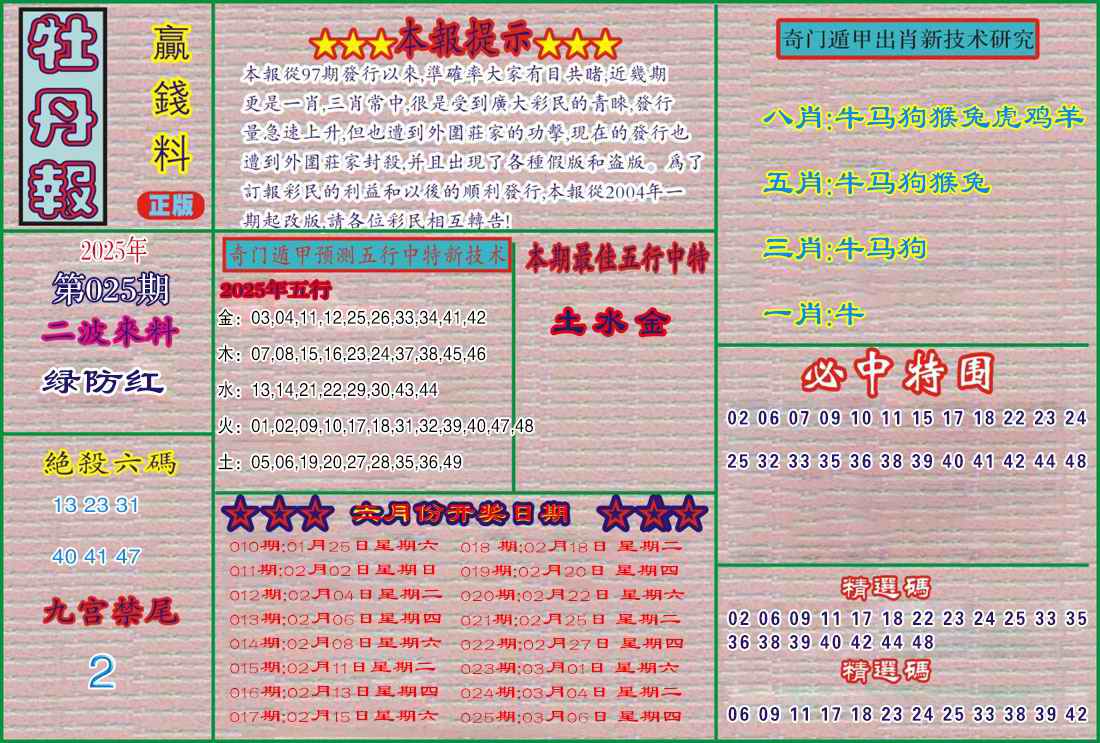 牡丹報
贏錢料
正版
2025年
第025期
二波來料
绿防红
絕殺六碼
13 23 31
40 41 47
九宫禁尾
2
★★★本報提示★★★
本報從97期發行以來,準確率大家有目共睹,近幾期
更是一肖,三肖常中,很是受到廣大彩民的青睞,發行
量急速上升,但也遭到外圍莊家的功擊,現在的發行也
遭到外圍莊家封殺,并且出現了各種假版和盗版。爲了
訂報彩民的利益和以後的順利發行,本報從2004年一
期起改版,請各位彩民相互轉告!
奇门遁甲预测五行中特新技术
2025年五行
金：03,04,11,12,25,26,33,34,41,42
木：07,08,15,16,23,24,37,38,45,46
水：13,14,21,22,29,30,43,44
火：01,02,09,10,17,18,31,32,39,40,47,48
土：05,06,19,20,27,28,35,36,49
本期最佳五行中特
土水金
☆☆☆六月份开奖日期☆☆☆
010期:01月25日星期六
011期:02月02日星期日
012期:02月04日星期二
013期:02月06日星期四
014期:02月08日星期六
015期:02月11日星期二
016期:02月13日星期四
017期:02月15日星期六
018 期:02月18日 星期二
019期:02月20日 星期四
020期:02月22日 星期六
021期:02月25日 星期二
022期:02月27日 星期四
023期:03月01日 星期六
024期:03月04日 星期二
025期:03月06日 星期四
奇门遁甲出肖新技术研究
八肖:牛马狗猴兔虎鸡羊
五肖:牛马狗猴兔
三肖:牛马狗
一肖:牛
必中特围
02 06 07 09 10 11 15 17 18 22 23 24
25 32 33 35 36 38 39 40 41 42 44 48
精選碼
02 06 09 11 17 18 22 23 24 25 33 35
36 38 39 40 42 44 48
精選碼
06 09 11 17 18 23 24 25 33 38 39 42